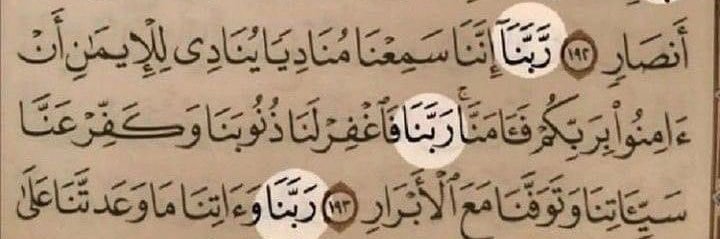 أَنصَارٍ ١٩٢ رَّبَّنَآ إِنَّنَا سَمِعْنَا مُنَادِيًا يُنَادِى لِلْإِيمَـٰنِ أَنْ
ءَامِنُوا۟ بِرَبِّكُمْ فَـَٔامَنَّا ۚ رَبَّنَا فَٱغْفِرْ لَنَا ذُنُوبَنَا وَكَفِّرْ عَنَّا
سَيِّـَٔاتِنَا وَتَوَفَّنَا مَعَ ٱلْأَبْرَارِ ١٩٣ رَبَّنَا وَءَاتِنَا مَا وَعَدتَّنَا عَلَىٰ